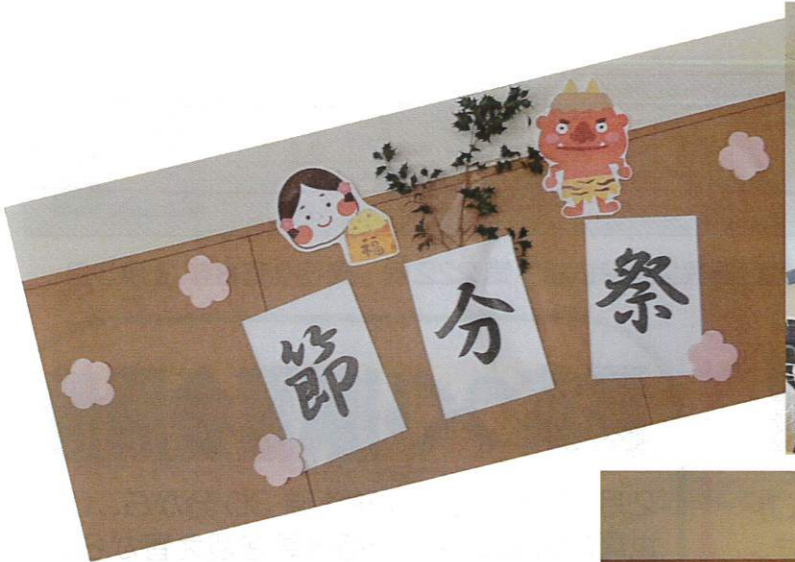 福
節分祭